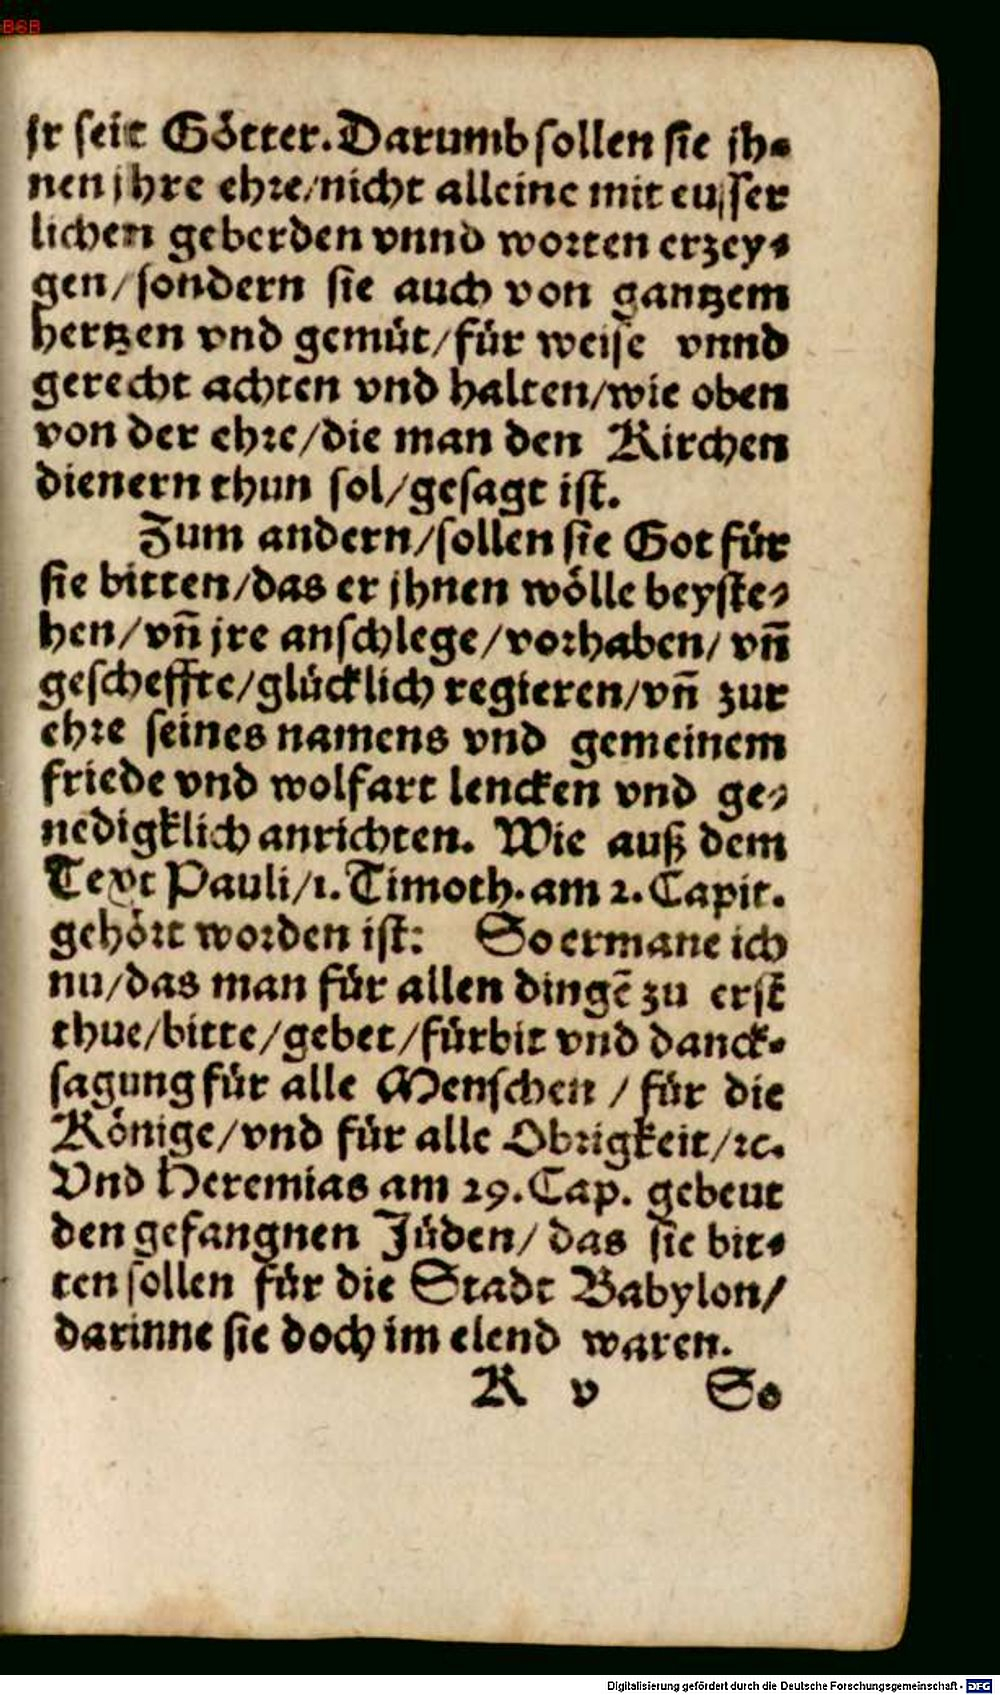 BSB
jr seit Götter. Darumb sollen sie jh-
nen jhre ehre/nicht alleine mit eusser
lichen geberden vnnd worten erzey-
gen/sondern sie auch von gantzem
hertzen vnd gemüt/für weise vnnd
gerecht achten vnd halten/wie oben
von der ehre/die man den Kirchen
dienern thun sol/gesagt ist.
Zum andern/sollen sie Got für
sie bitten/das er jhnen wölle beyste-
hen/vñ jre anschlege/vorhaben/vñ
gescheffte/glücklich regieren/vñ zur
ehre seines namens vnd gemeinem
friede vnd wolfart lencken vnd ge-
nedigklich anrichten. Wie auß dem
Text Pauli/1. Timoth. am 2. Capit.
gehört worden ist: So ermane ich
nu/das man für allen dingē zu erst
thue/bitte/gebet/fürbit vnd danck-
sagung für alle Menschen/für die
Könige/vnd für alle Obrigkeit/ꝛc.
Vnd Heremias am 29. Cap. gebeut
den gefangnen Jüden/das sie bit-
ten sollen für die Stadt Babylon/
darinne sie doch im elend waren.
R v So
Digitalisierung gefördert durch die Deutsche Forschungsgemeinschaft - DFG